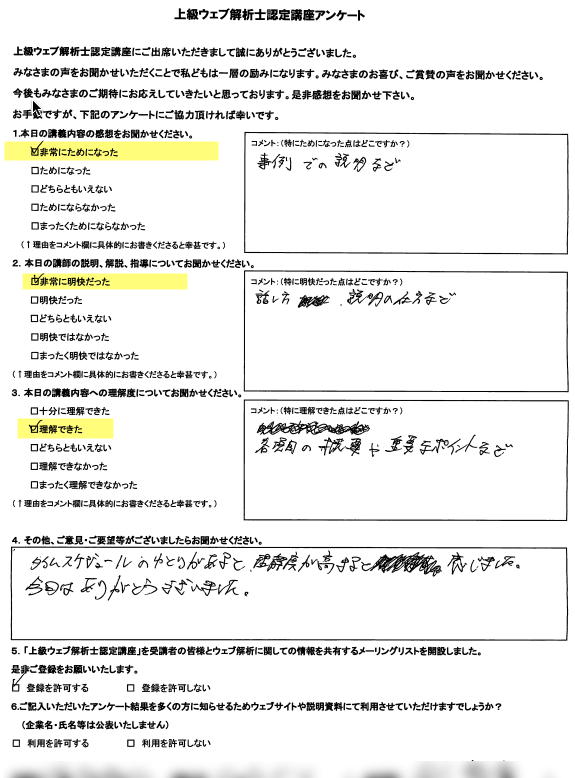 上級ウェブ解析士認定講座アンケート
上級ウェブ解析士認定講座にご出席いただきまして誠にありがとうございました。
みなさまの声をお聞かせいただくことで私どもは一層の励みになります。みなさまのお喜び、ご賞賛の声をお聞かせください。
今後もみなさまのご期待にお応えしていきたいと思っております。是非感想をお聞かせ下さい。
お手数ですが、下記のアンケートにご協力頂ければ幸いです。
1.本日の講義内容の感想をお聞かせください。
☑非常にためになった
□ためになった
□どちらともいえない
□ためにならなかった
□まったくためにならなかった
(↑理由をコメント欄に具体的にお書きくださると幸甚です。)
コメント:(特にためになった点はどこですか?)
事例での説明など
2. 本日の講師の説明、解説、指導についてお聞かせください。
☑非常に明快だった
□明快だった
□どちらともいえない
□明快ではなかった
□まったく明快ではなかった
(↑理由をコメント欄に具体的にお書きくださると幸甚です。)
コメント:(特に明快だった点はどこですか?)
話し方 、説明の仕方など
3. 本日の講義内容への理解度についてお聞かせください。
□十分に理解できた
☑理解できた
□どちらともいえない
□理解できなかった
□まったく理解できなかった
(↑理由をコメント欄に具体的にお書きくださると幸甚です。)
コメント:(特に理解できた点はどこですか?)
各項目の概要や重要なポイントなど
4. その他、ご意見・ご要望等がございましたらお聞かせください。
タイムスケジュールのゆとりがあると、理解度が高まると 感じました。
今回はありがとうございました。
5. 「上級ウェブ解析士認定講座」を受講者の皆様とウェブ解析に関しての情報を共有するメーリングリストを開設しました。
是非ご登録をお願いいたします。
☑ 登録を許可する □ 登録を許可しない
6.ご記入いただいたアンケート結果を多くの方に知らせるためウェブサイトや説明資料にて利用させていただけますでしょうか?
(企業名・氏名等は公表いたしません)
□ 利用を許可する □ 利用を許可しない